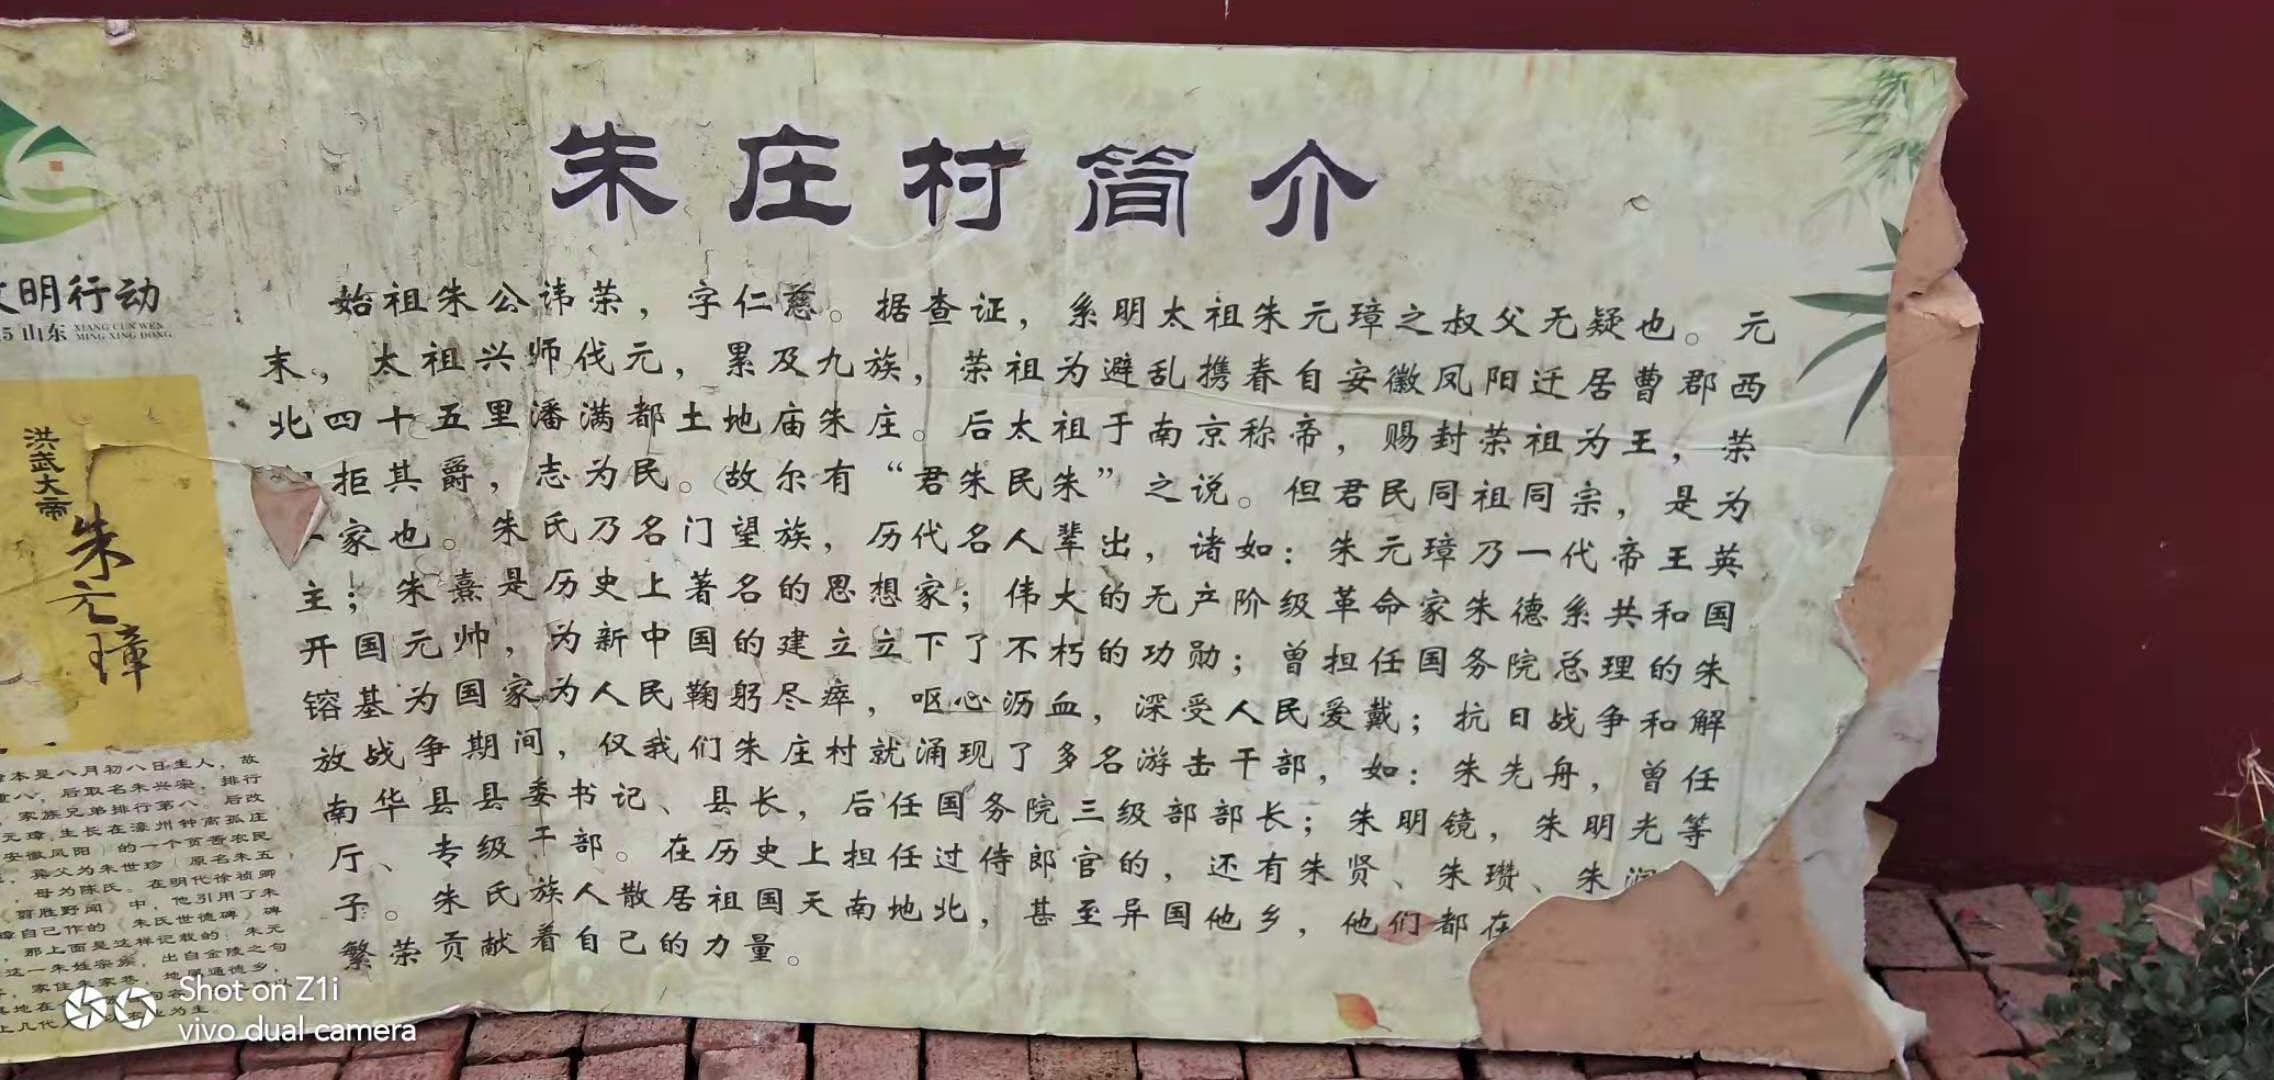 朱庄村简介
始祖朱公讳荣，字仁慈。据查证，系明太祖朱元璋之叔父无疑也。元
末，太祖兴师伐元，累及九族，荣祖为避乱携眷自安徽凤阳迁居曹郡西
北四十五里潘满都土地庙朱庄。后太祖于南京称帝，赐封荣祖为王，荣
拒其爵，志为民。故尔有“君朱民朱”之说。但君民同祖同宗，是为
家也。朱氏乃名门望族，历代名人辈出，诸如：朱元璋乃一代帝王英
主；朱熹是历史上著名的思想家；伟大的无产阶级革命家朱德系共和国
开国元帅，为新中国的建立立下了不朽的功勋；曾担任国务院总理的朱
镕基为国家为人民鞠躬尽瘁，呕心沥血，深受人民爱戴；抗日战争和解
放战争期间，仅我们朱庄村就涌现了多名游击干部，如：朱先舟，曾任
南华县县委书记、县长，后任国务院三级部部长；朱明镜，朱明光等
厅、专级干部。在历史上担任过侍郎官的，还有朱贤、朱瓒、朱
子。朱氏族人散居祖国天南地北，甚至异国他乡，他们都在
繁荣贡献着自己的力量。
明行动
5 山东 XIANG CUN WEN
MING XING DONG
洪武大帝
朱元璋
本是八月初八日生人，故
八，后取名朱兴宗，排行
家族兄弟排行第八。后改
元璋，生长在濠州钟离孤庄
安徽凤阳）的一个贫苦农民
，其父为朱世珍（原名朱五
，母为陈氏。在明代徐祯卿
《翦胜野闻》中，他引用了朱
璋自己作的《朱氏世德碑》碑
，那上面是这样记载的：朱元
这一朱姓宗族，出自金陵之句
，家住朱家巷，地属通德乡，
地在
上几代 业为主。
Shot on Z1i
vivo dual camera